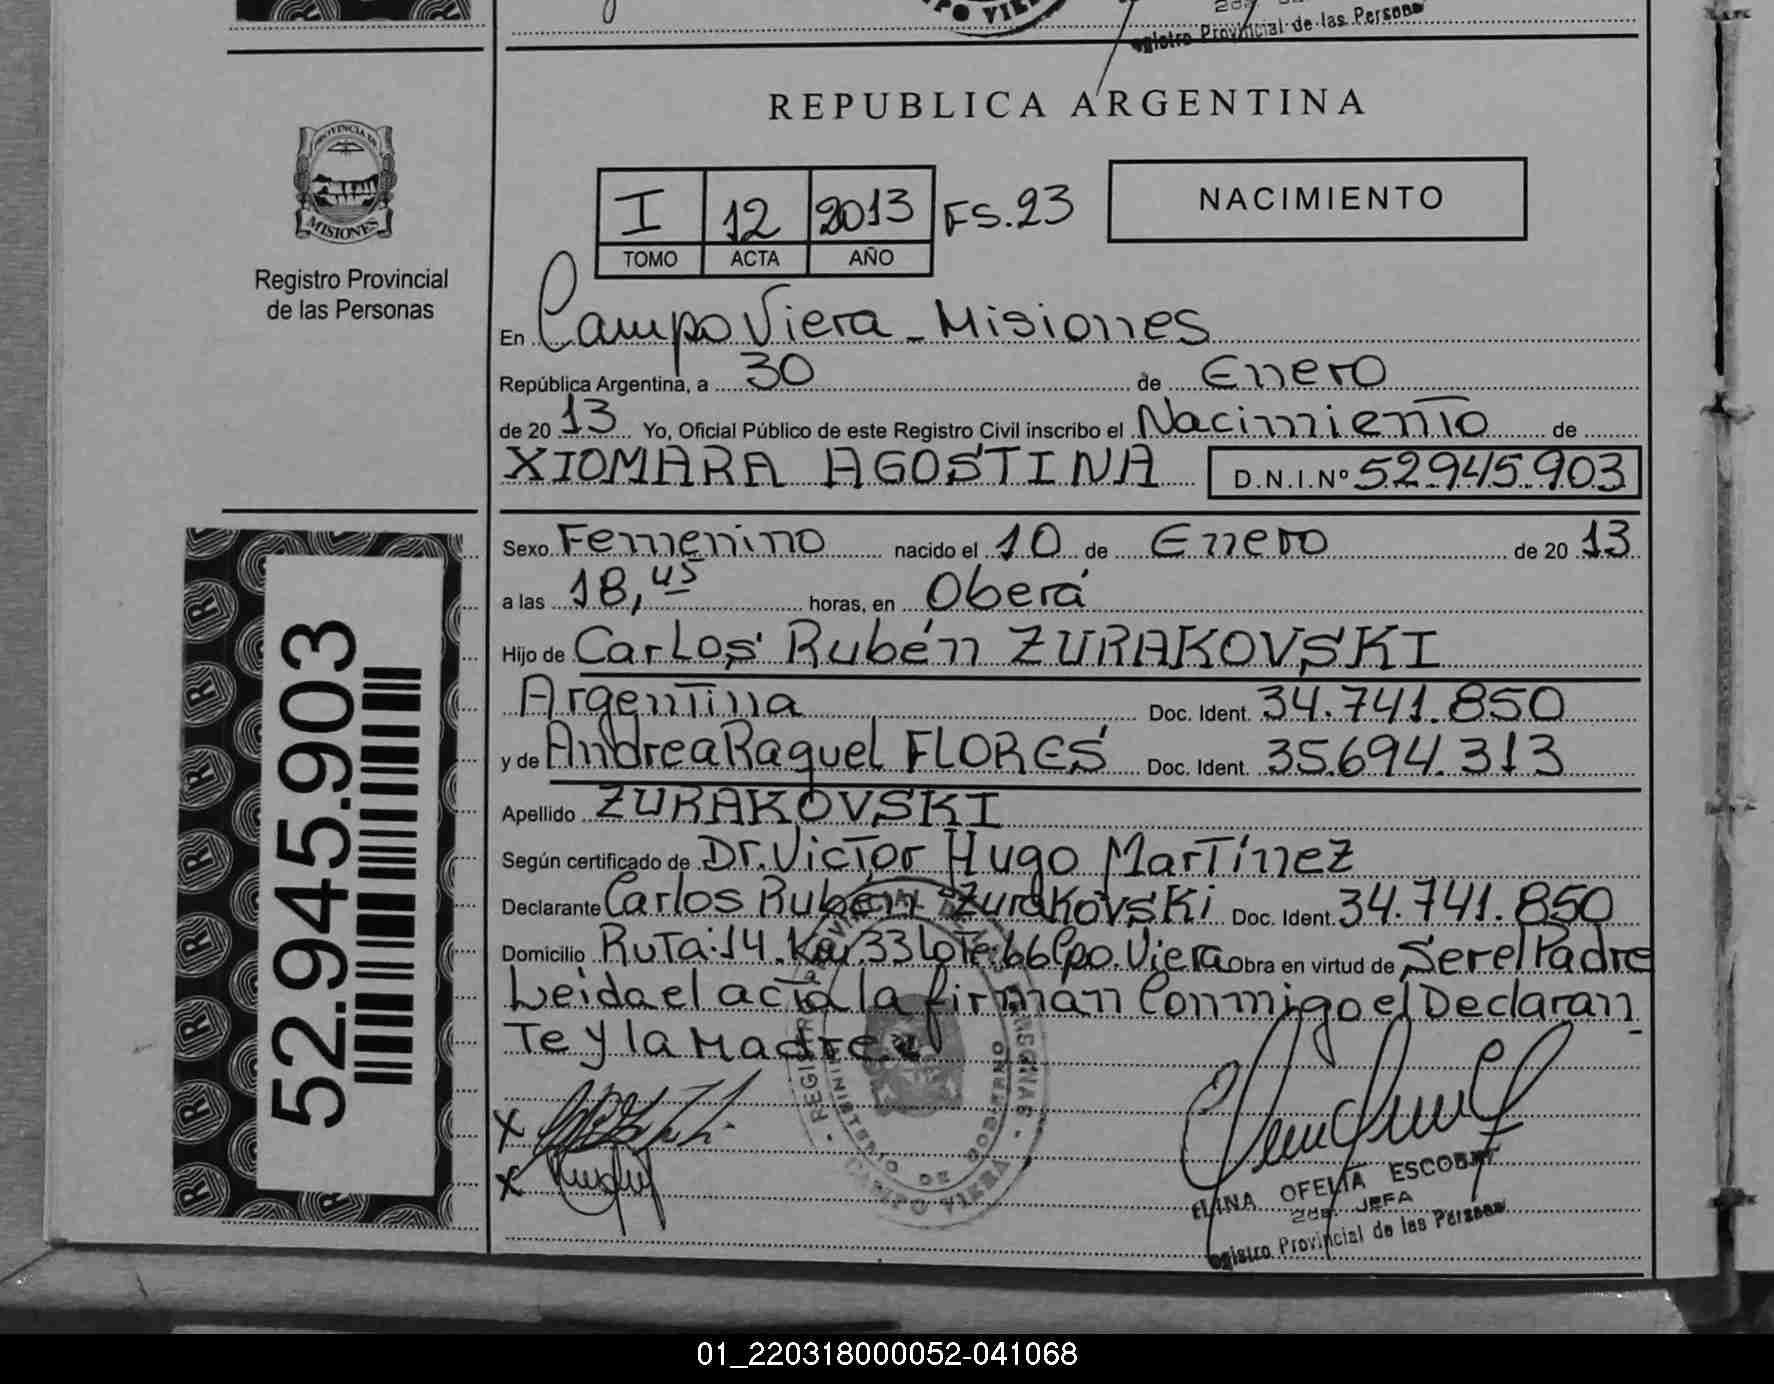 2da
Registro Provincial de las Personas
REPUBLICA ARGENTINA
PROVINCIA DE
MISIONES
Registro Provincial
de las Personas
I 12 2013 FS.23
TOMO ACTA AÑO
NACIMIENTO
En Campo Viera - Misiones
República Argentina, a 30 de Enero
de 20 13 Yo, Oficial Público de este Registro Civil inscribo el Nacimiento de
XIOMARA AGOSTINA D.N.I.Nº 52.945.903
Sexo Femenino nacido el 10 de Enero de 20 13
a las 18,45 horas, en Oberá
Hijo de Carlos Rubén ZURAKOVSKI
Argentina Doc. Ident. 34.741.850
y de Andrea Raquel FLORES Doc. Ident. 35.694.313
Apellido ZURAKOVSKI
Según certificado de Dr. Victor Hugo Martínez
Declarante Carlos Rubén Zurakovski Doc. Ident. 34.741.850
Domicilio Ruta:14.Km.33 Lote:66 Cpo.Viera Obra en virtud de Ser el Padre
Leida el acta la firman Conmigo el Declaran
Te y la Madre
52.945.903
X
X
MINISTERIO DE GOBIERNO
CAMPO VIERA
ELINA OFELIA ESCOBAR
2da. JEFA
Registro Provincial de las Personas
01_220318000052-041068